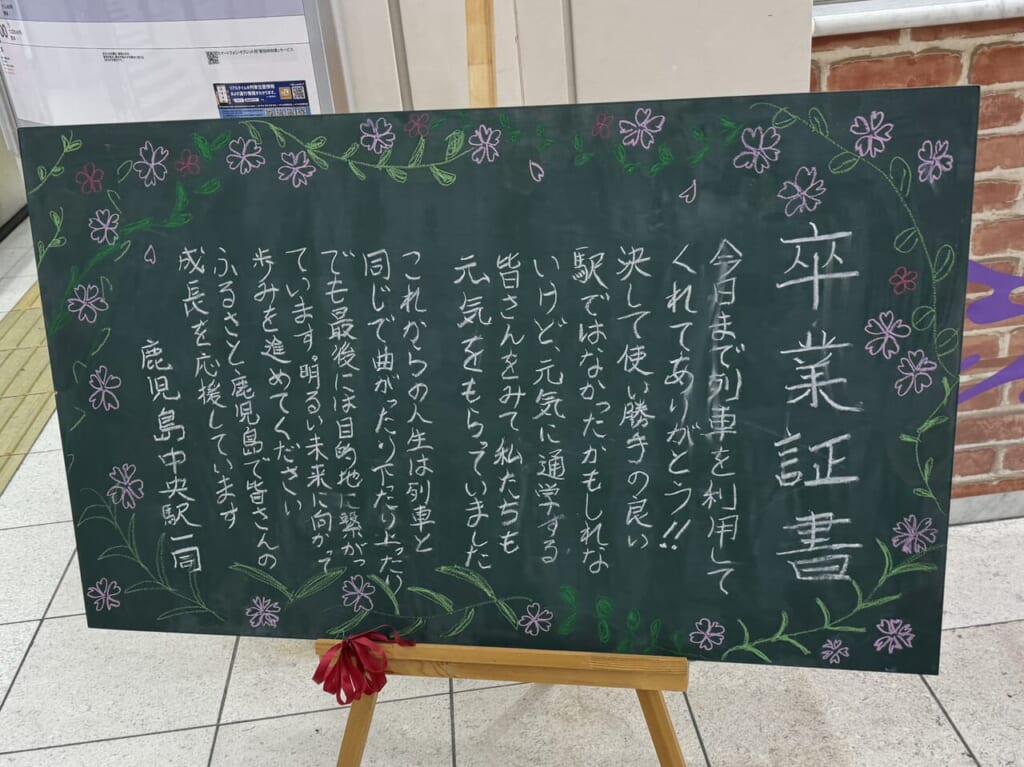 卒業証書
今日まで列車を利用して
くれてありがとう!!
決して使い勝手の良い
駅ではなかったかもしれな
いけど、元気に通学する
皆さんをみて私たちも
元気をもらっていました
これからの人生は列車と
同じで曲がったり下ったり上ったり
でも最後には目的地に繋がっ
ています。明るい未来に向かって
歩みを進めてください
ふるさと鹿児島で皆さんの
成長を応援しています
鹿児島中央駅一同